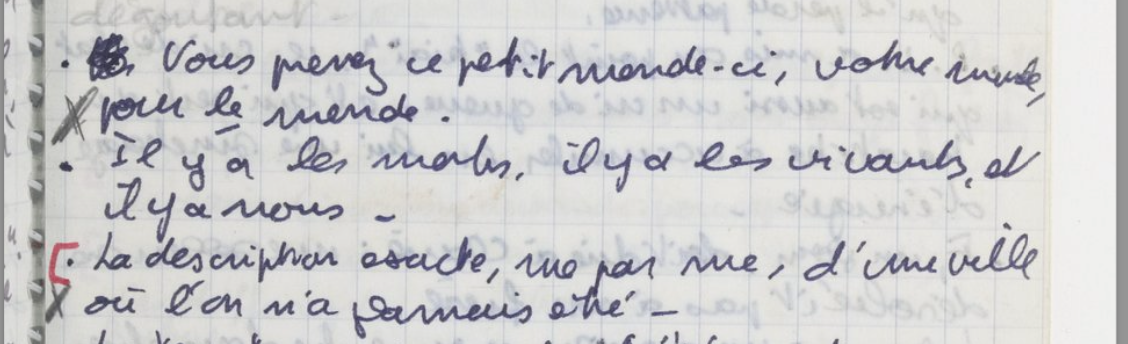 . Vous prenez ce petit monde-ci, votre monde,
pour le monde.
. Il y a les morts, il y a les vivants, et
il y a nous -
. La description exacte, rue par rue, d'une ville
où l'on n'a jamais été -